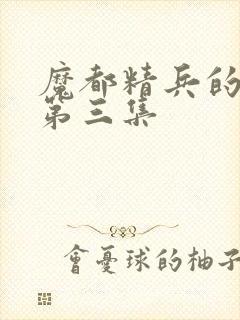 魔都精兵的
第三集
會憂球的柚子